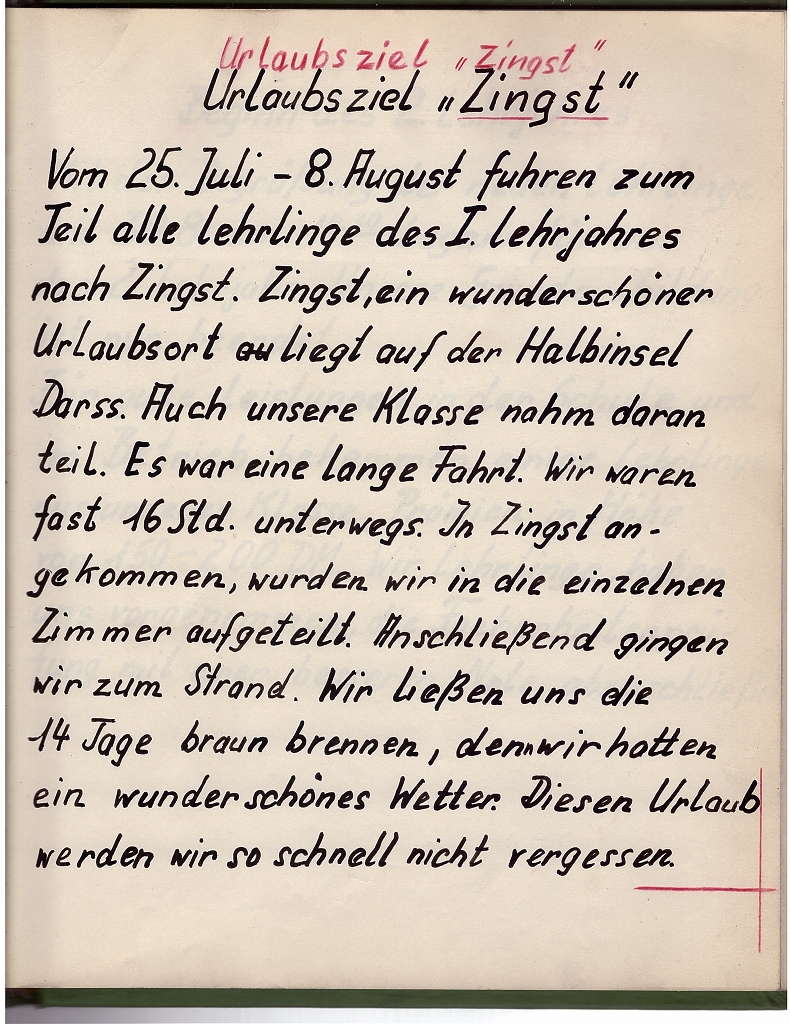 Urlaubsziel „Zingst"
Urlaubsziel „Zingst"
Vom 25. Juli - 8. August fuhren zum
Teil alle lehrlinge des I. lehrjahres
nach Zingst. Zingst, ein wunderschöner
Urlaubsort au liegt auf der Halbinsel
Darss. Auch unsere Klasse nahm daran
teil. Es war eine lange Fahrt. Wir waren
fast 16 Std. unterwegs. In Zingst an-
gekommen, wurden wir in die einzelnen
Zimmer aufgeteilt. Anschließend gingen
wir zum Strand. Wir ließen uns die
14 Tage braun brennen, denn wir hatten
ein wunderschönes Wetter. Diesen Urlaub
werden wir so schnell nicht vergessen.